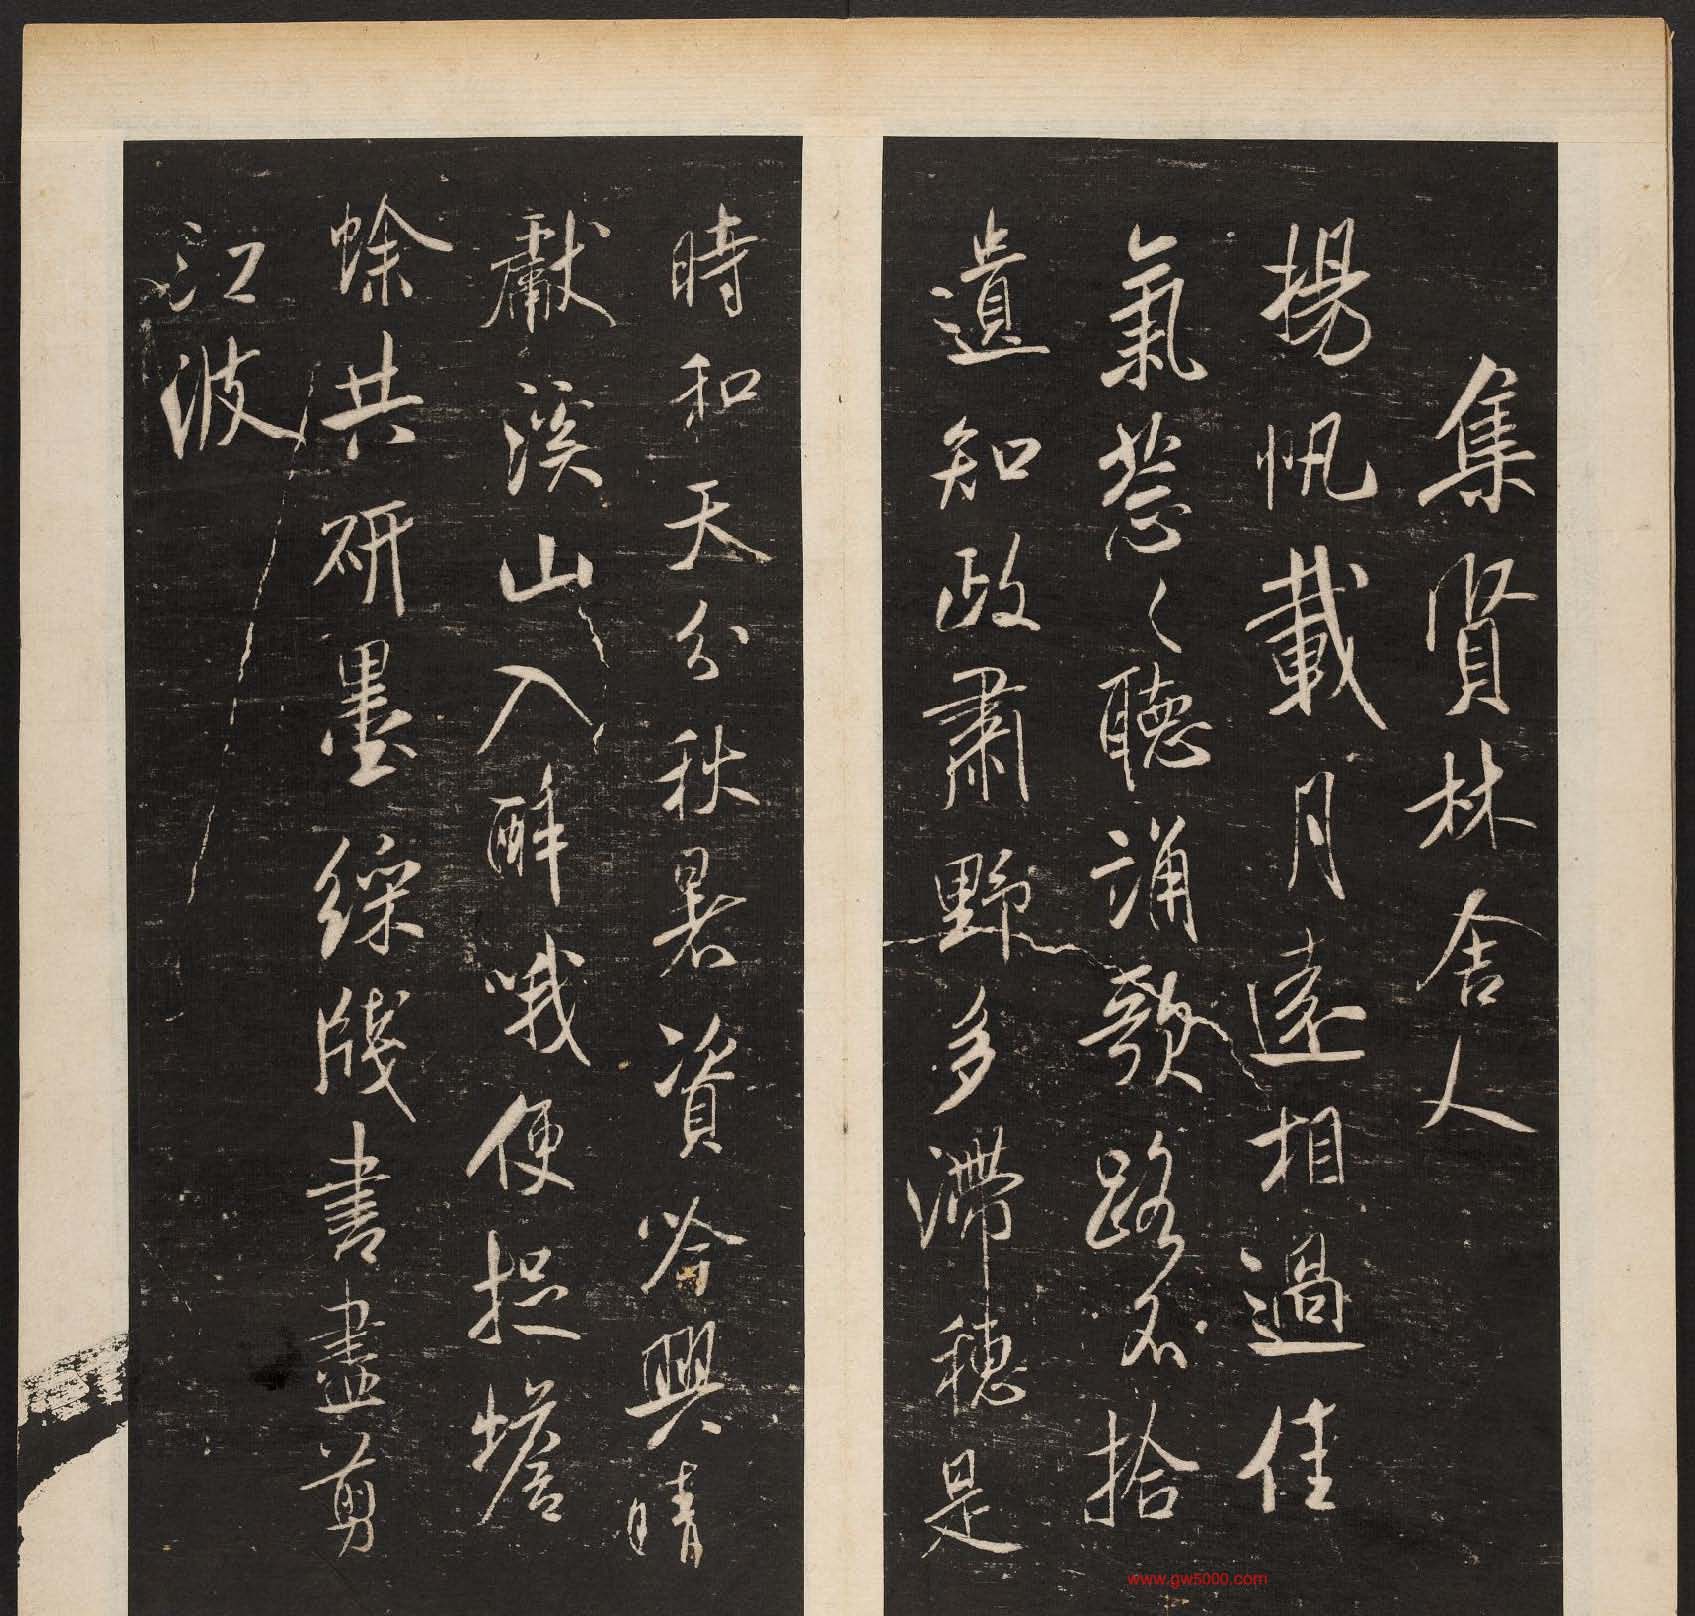 集賢林舍人
揚帆載月遠相過佳
氣葱〻聽誦歌路不拾
遺知政肅野多滯穗是
時和天分秋暑資吟興晴
獻溪山入醉哦便捉蟾
蜍共研墨綵牋書盡剪
江波
www.gw5000.com